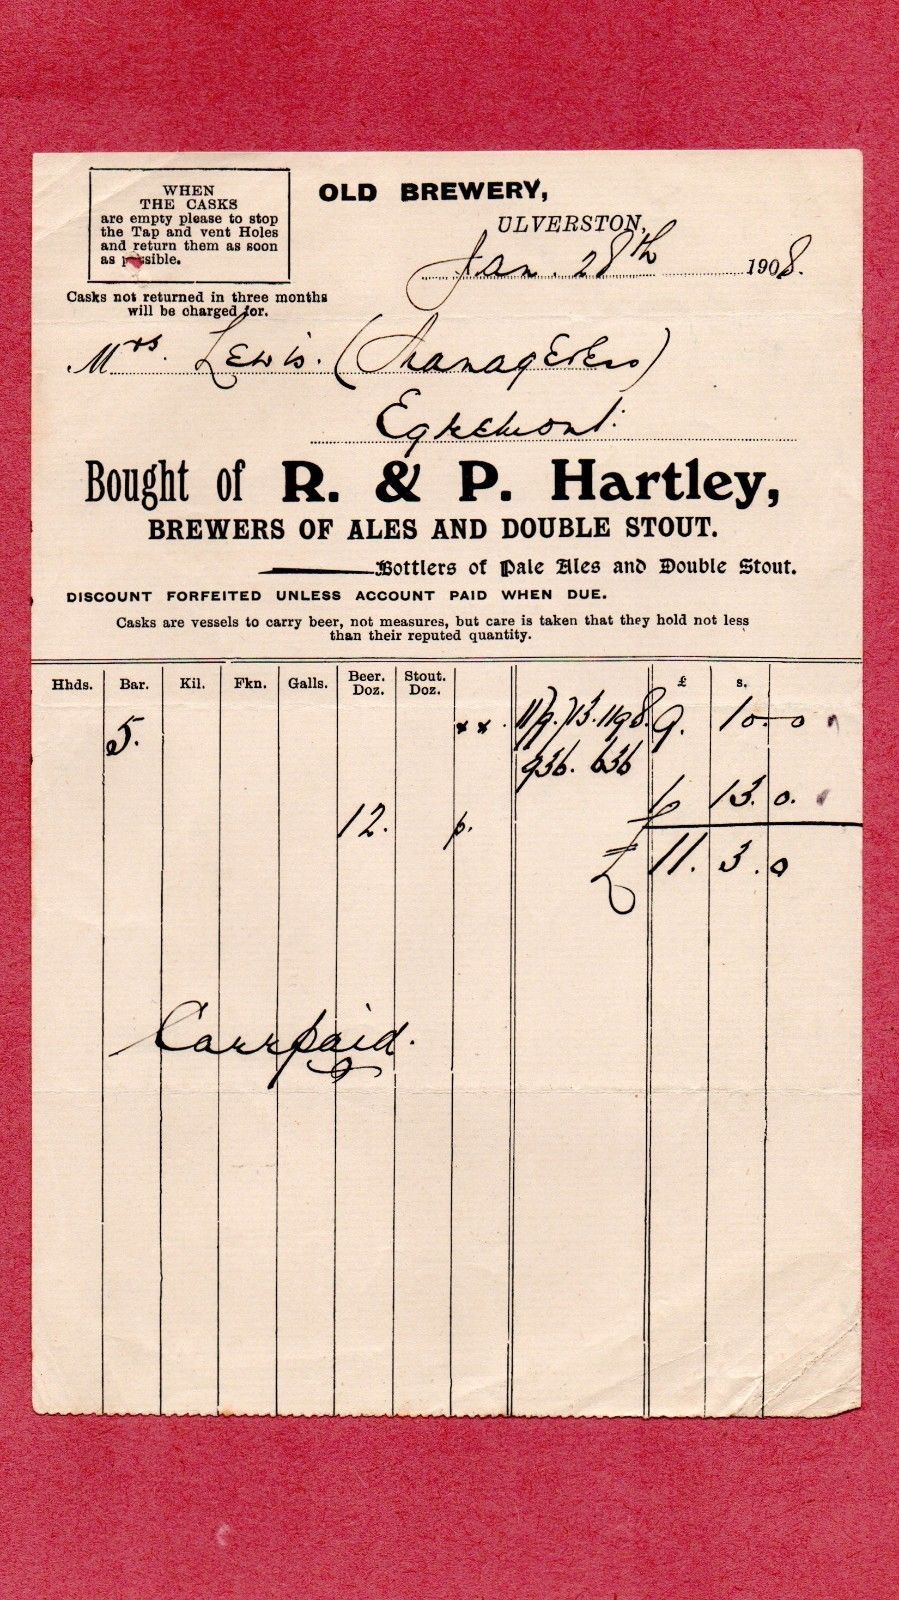 WHEN
THE CASKS
are empty please to stop
the Tap and vent Holes
and return them as soon
as possible.
Casks not returned in three months
will be charged for.
OLD BREWERY,
ULVERSTON,
Jan. 28th 1908.
Mrs. Lewis. (Manageress)
Egremont.
Bought of R. & P. Hartley,
BREWERS OF ALES AND DOUBLE STOUT.
Bottlers of Pale Ales and Double Stout.
DISCOUNT FORFEITED UNLESS ACCOUNT PAID WHEN DUE.
Casks are vessels to carry beer, not measures, but care is taken that they hold not less
than their reputed quantity.
Hhds. Bar. Kil. Fkn. Galls. Beer. Doz. Stout. Doz. £ s.
5. xx. 713. 1198. 9. 10. 0
936. 636
12. p. 1. 13. 0.
£ 11. 3. 0
Carr paid.